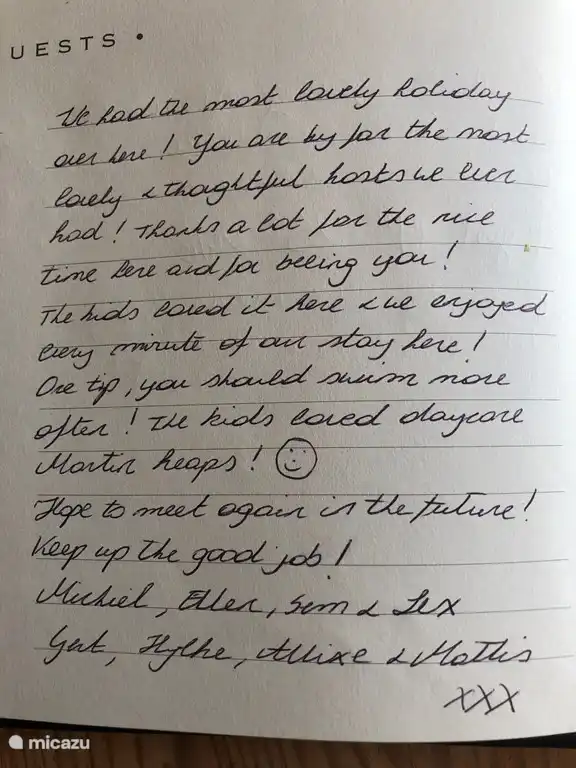 UESTS •
We had the most lovely holiday
over here! You are by far the most
lovely & thoughtful hosts we ever
had! Thanks a lot for the nice
time here and for beeing you!
The kids loved it here & we enjoyed
every minute of our stay here!
One tip, you should swim more
often! The kids loved daycare
Martin heaps! ☺
Hope to meet again in the future!
Keep up the good job!
Michiel, Ellen, Sem & Lex
Gert, Hylke, & Mattis
XXX
micazu